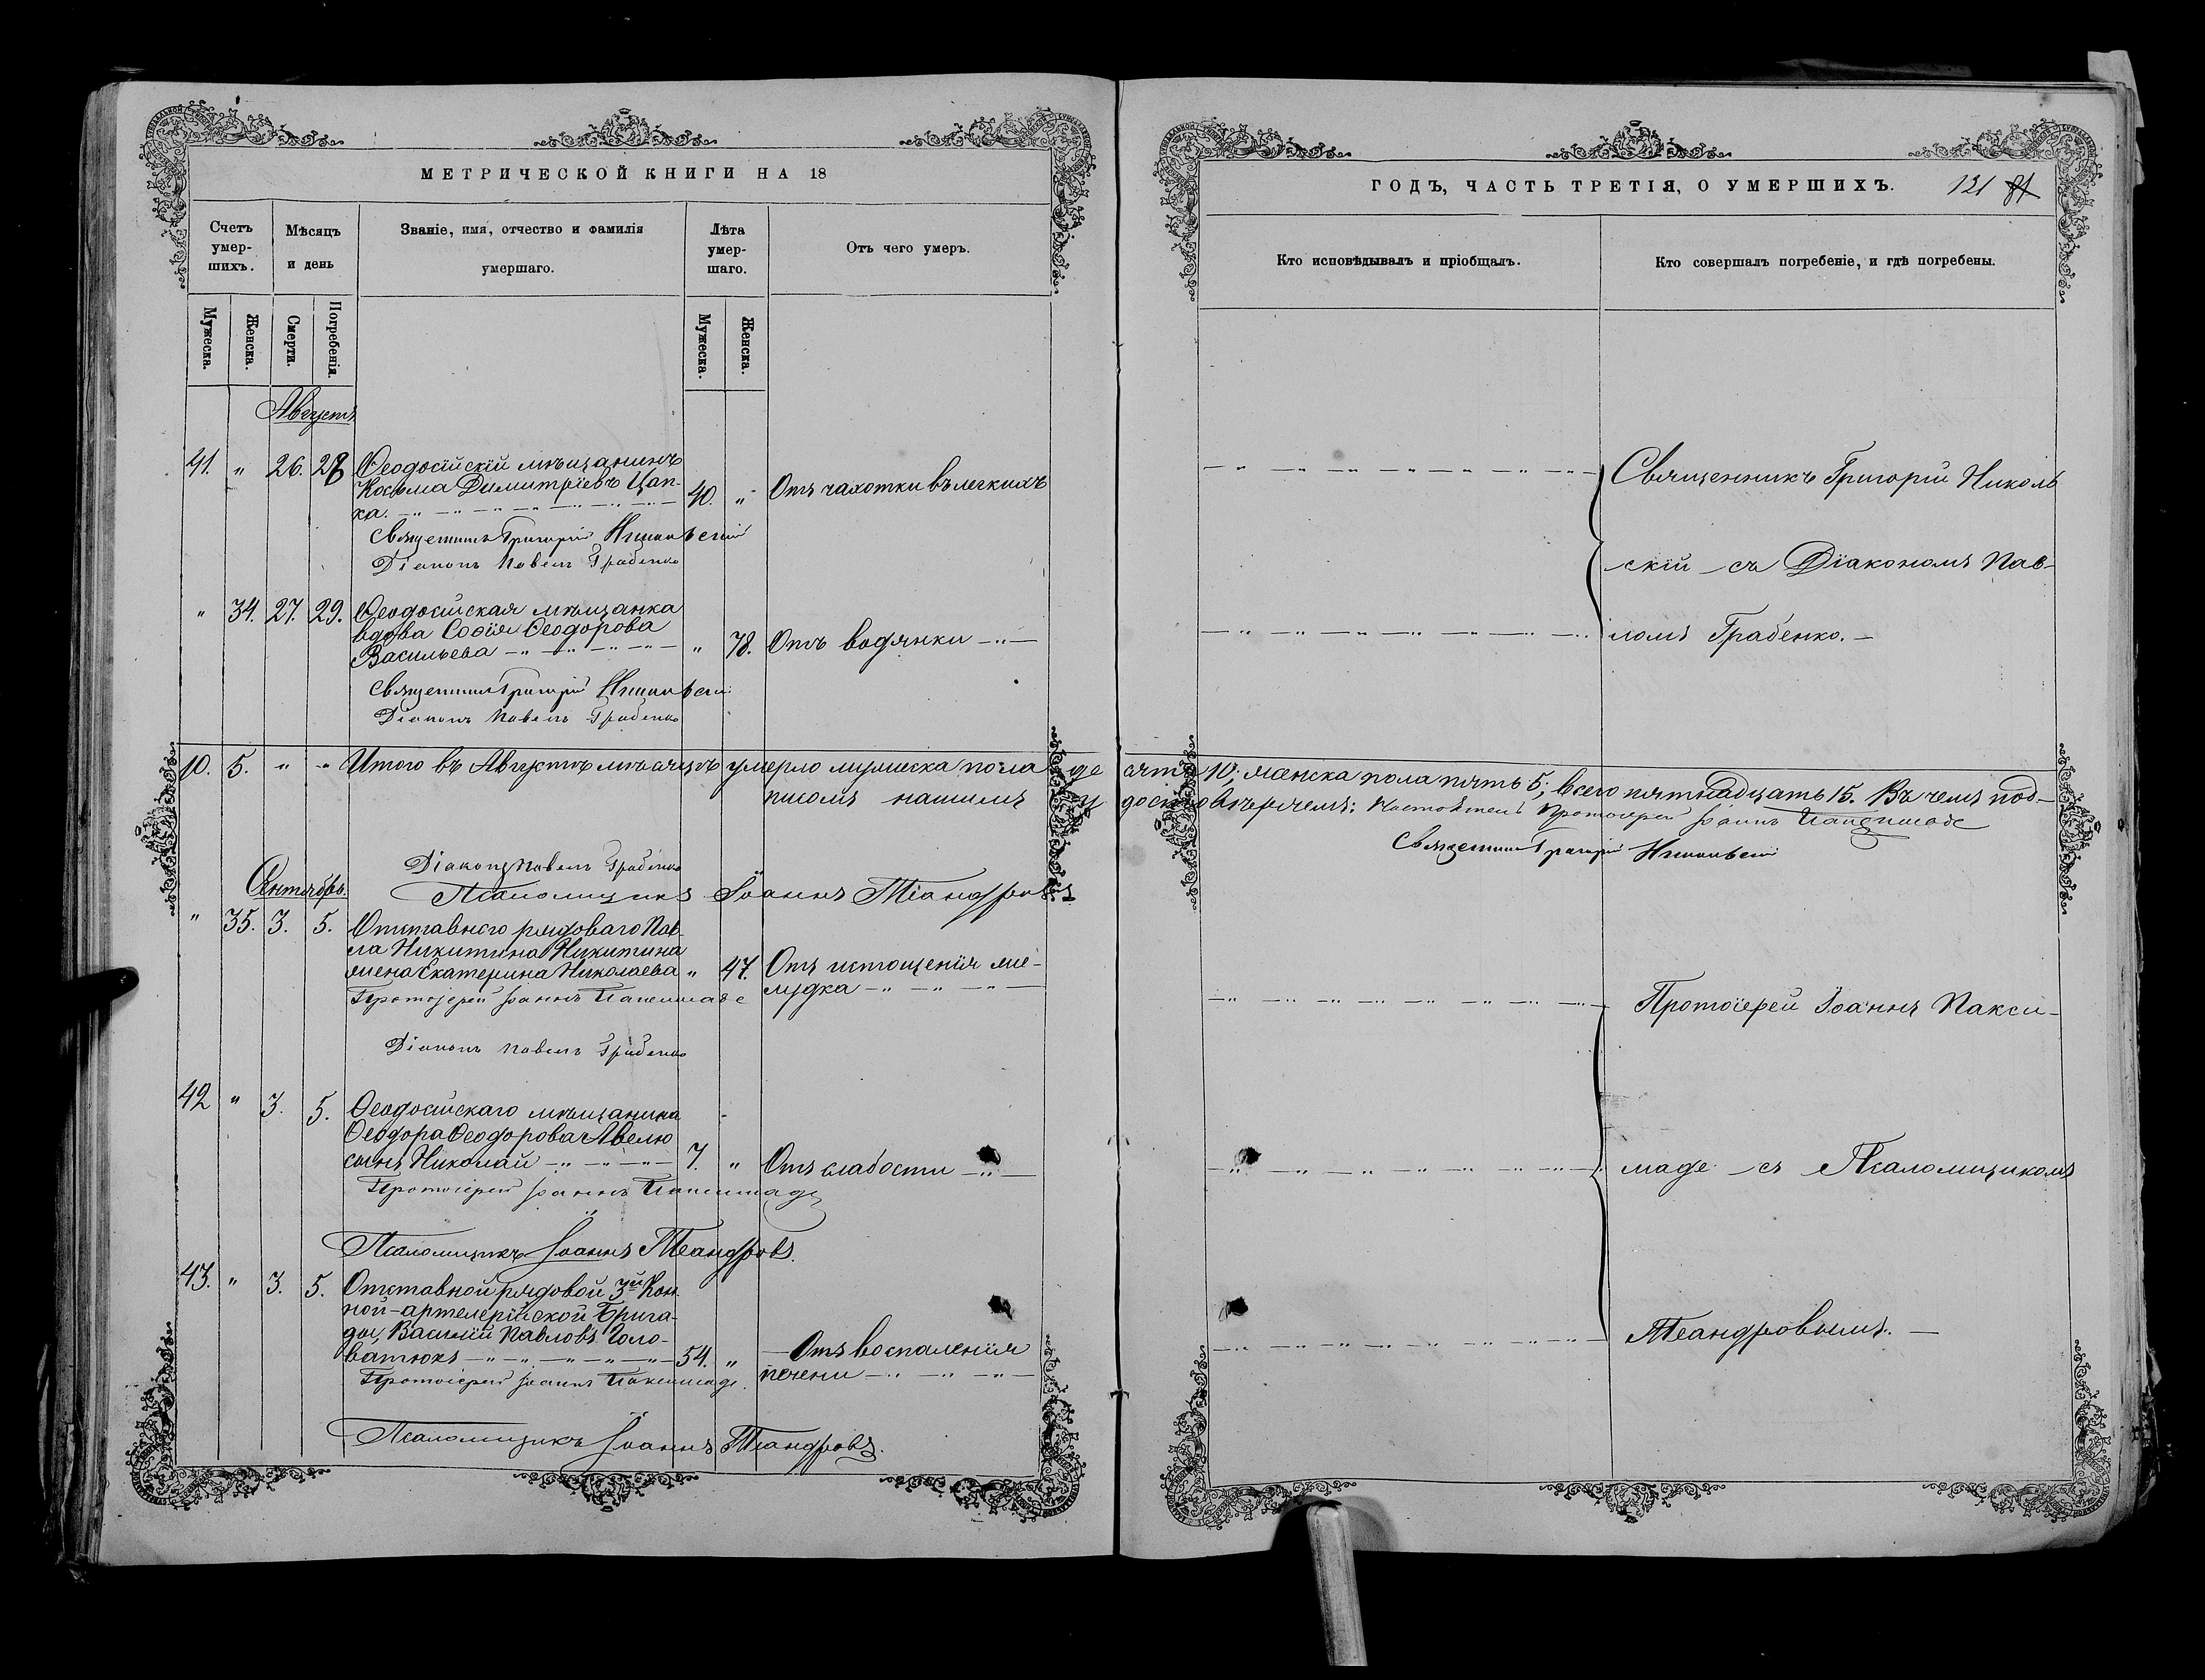 МЕТРИЧЕСКОЙ КНИГИ НА 18
Счетъ умер-шихъ.
Мѣсяцъ и день
Званіе, имя, отчество и фамилія
умершаго.
Лѣта умер-шаго.
Отъ чего умеръ.
Мужеска.
Женска.
Смерти.
Погребенія.
Мужеска.
Женска.
Августъ
41. " 26. 28 Ѳеодосійскій мѣщанинъ
Косьма Димитріевъ Цап-
ка. 40. " Отъ чахотки въ легкихъ
Священникъ Григорій Никольскій
Діаконъ Павелъ Грабенко
" 34. 27. 29. Ѳеодосійская мѣщанка
вдова Софія Ѳеодорова
Васильева " 78. Отъ водянки
Священникъ Григорій Никольскій
Діаконъ Павелъ Грабенко
10. 5. " " Итого въ Августѣ мѣсяцѣ умерло мужеска пола де
писомъ нашимъ у
Діаконъ Павелъ Грабенко
Псаломщикъ Іоаннъ Теандровъ
Сентябрь.
" 35. 3. 5. Отставного рядоваго Пав-
ла Никитина Никитина
жена Екатерина Николаева " 47. Отъ истощенія же-
лудка
Протоіерей Іоаннъ Паксимаде
Діаконъ Павелъ Грабенко
42 " 3. 5. Ѳеодосійскаго мѣщанина
Ѳеодора Ѳеодорова Авелю
сынъ Николай 7. " Отъ слабости
Протоіерей Іоаннъ Паксимаде
Псаломщикъ Іоаннъ Теандровъ.
43. " 3. 5. Отставной рядовой 3й Кон
ной-артелерійской Брига-
ды, Василій Павловъ Голо-
ватюкъ 54. " Отъ воспаленія
печени
Протоіерей Іоаннъ Паксимаде.
Псаломщикъ Іоаннъ Теандровъ.
ГОДЪ, ЧАСТЬ ТРЕТІЯ, О УМЕРШИХЪ.
121 81
Кто исповѣдывалъ и пріобщалъ.
Кто совершалъ погребеніе, и гдѣ погребены.
Священникъ Григорій Николь
скій съ Діакономъ Пав-
ломъ Грабенко.
сять 10; женска пола пять 5; всего пятнадцать 15. Въ чемъ под-
достовѣряемъ: Настоятель Протоіерей Іоаннъ Паксимаде
Священникъ Григорій Никольскій
Протоіерей Іоаннъ Пакси-
маде съ Псаломщикомъ
Теандровымъ.